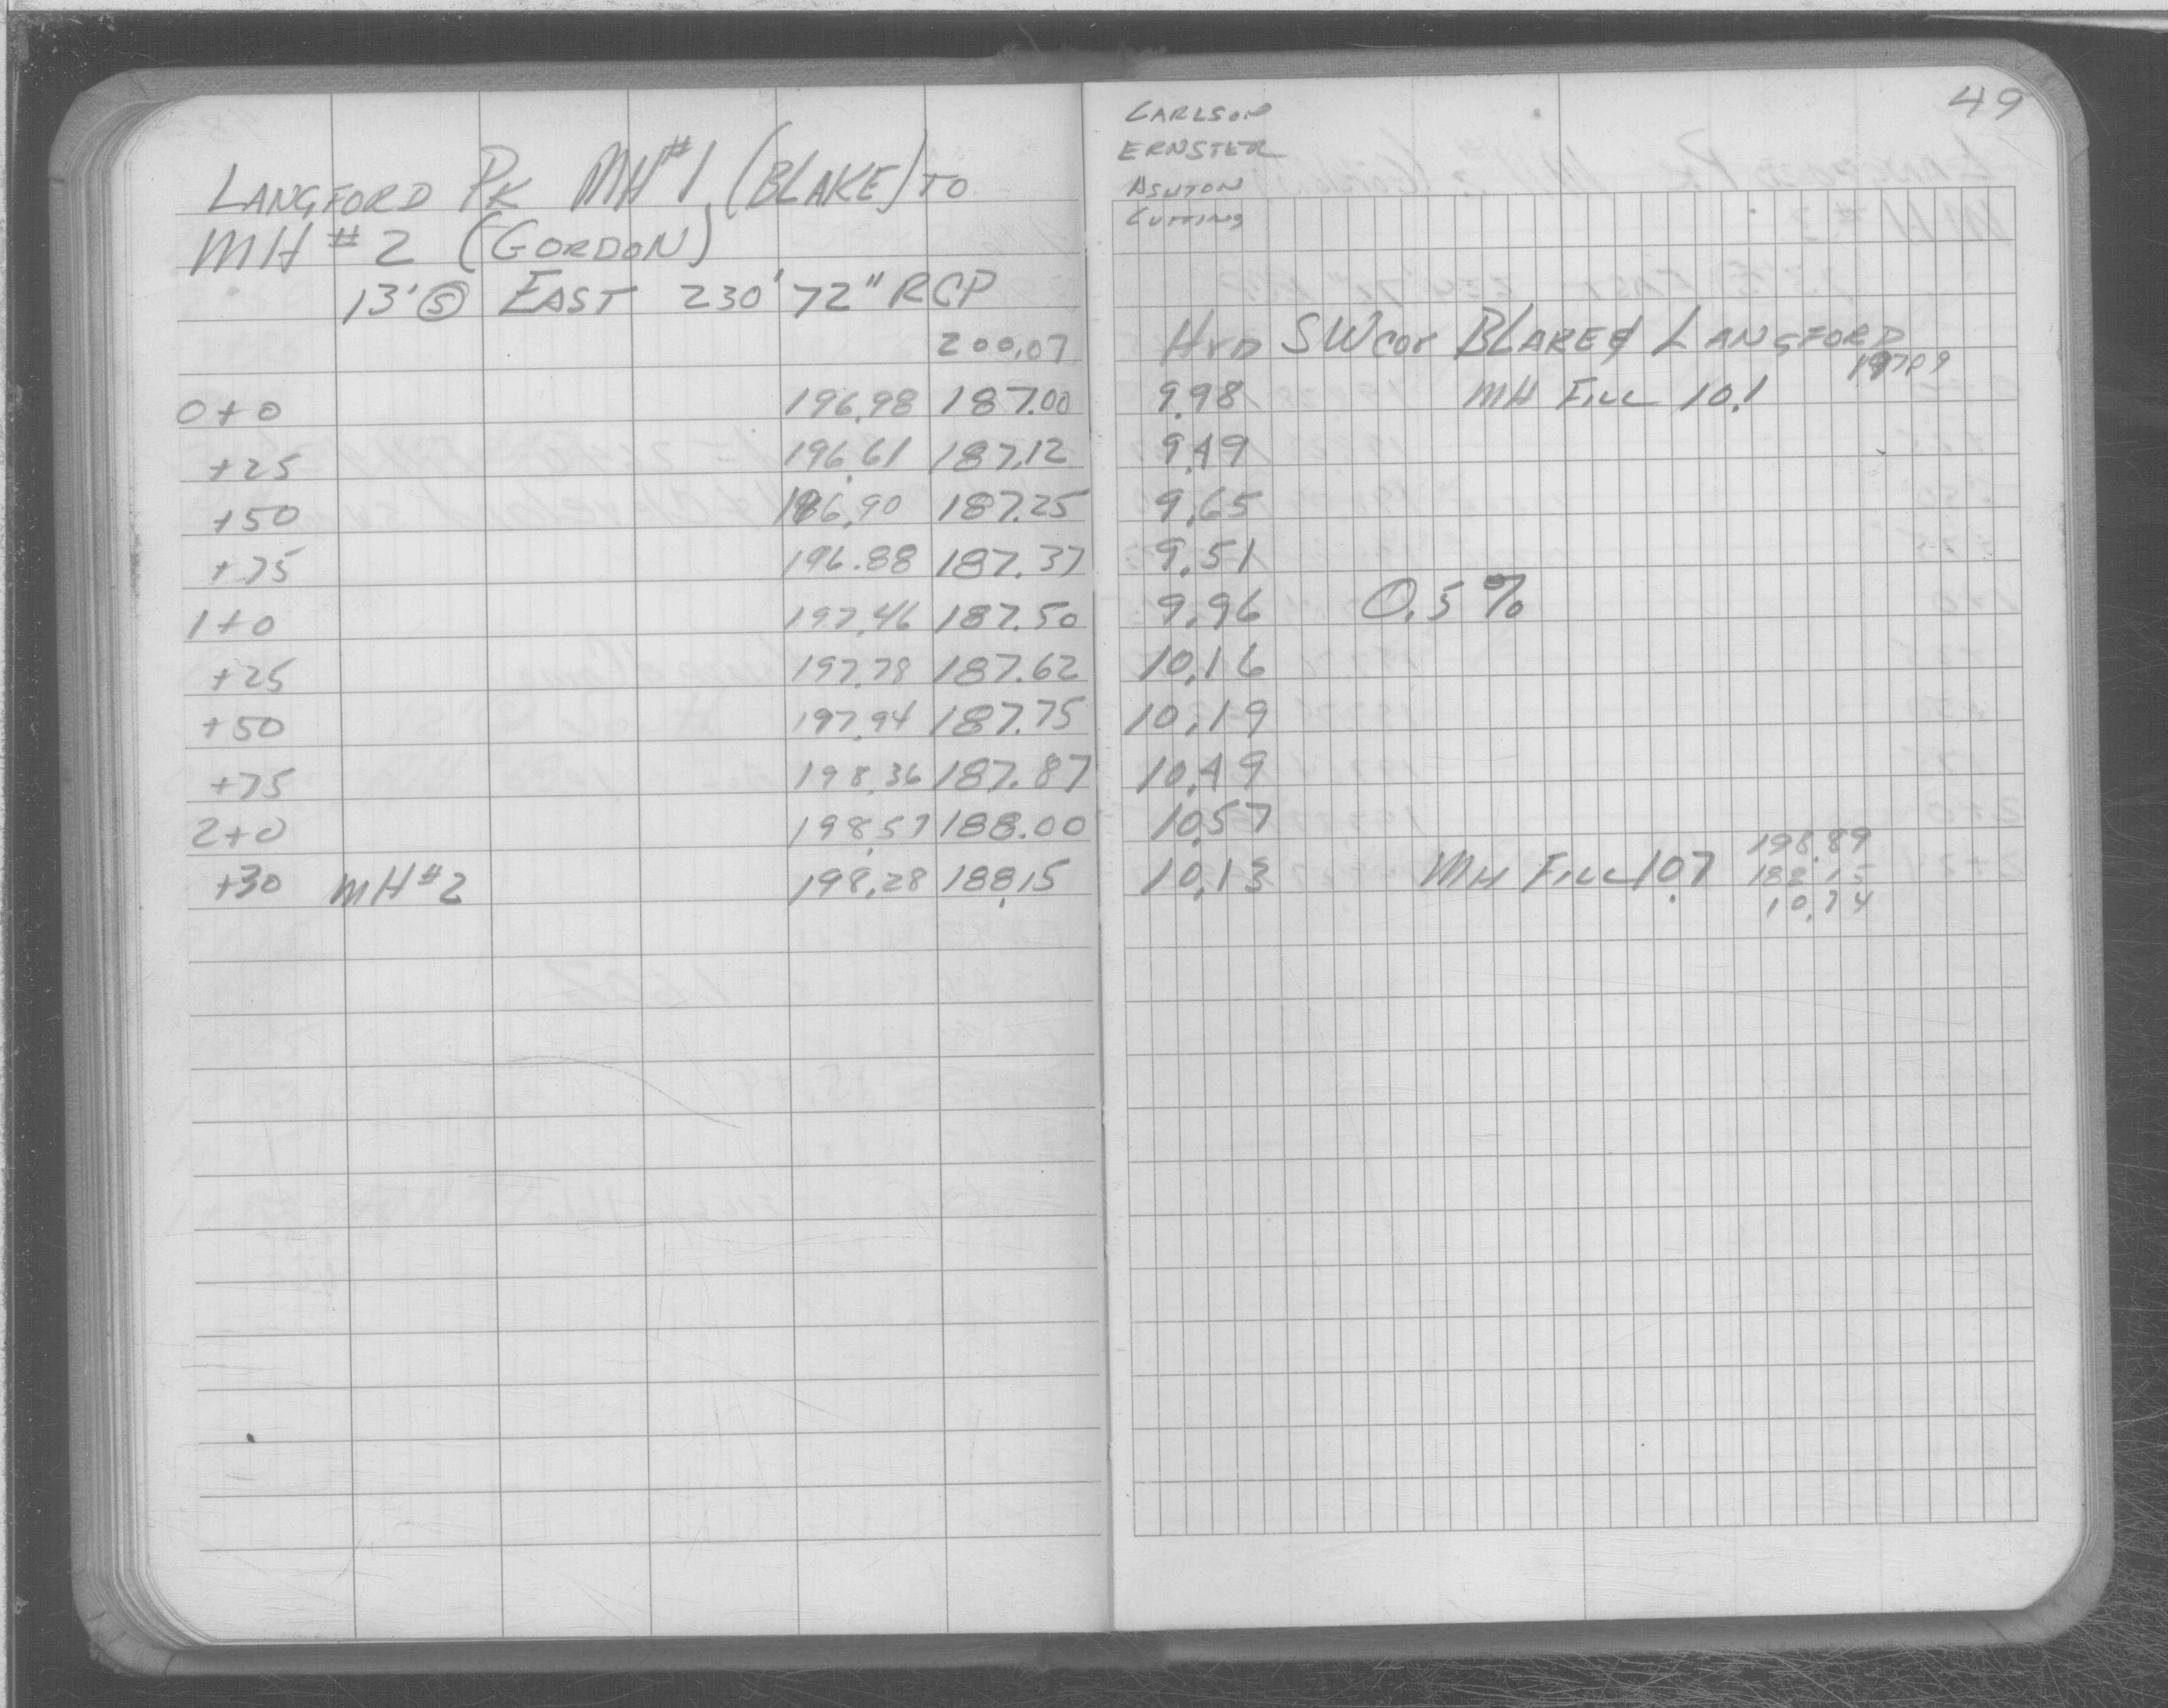 LANGFORD PK MH#1 (BLAKE) TO
MH #2 (GORDON)
13' Ⓢ EAST 230' 72" RCP
200.07
0+0 196.98 187.00
+25 196.61 187.12
+50 196.90 187.25
+75 196.88 187.37
1+0 197.46 187.50
+25 197.78 187.62
+50 197.94 187.75
+75 198.36 187.87
2+0 198.57 188.00
+30 MH#2 198.28 188.15
49
CARLSON
ERNSTER
ASHTON
CUTTING
HYD SW cor BLAKE & LANGFORD
197.09
9.98 MH FILL 10.1
9.49
9.65
9.51
9.96 0.5%
10.16
10.19
10.49
10.57
198.89
10.13 MH FILL 10.7 188.15
10.74